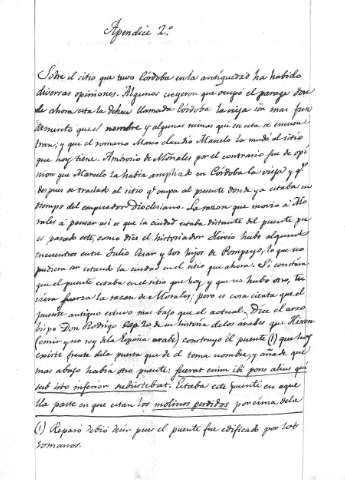 Apendice 2.º
Sobre el sitio que tuvo Córdoba en la antigüedad ha habido
diversas opiniones. Algunos creyeron que ocupó el parage don-
de ahora esta la dehesa llamada Córdoba la vieja sin mas fun-
damento que el nombre y algunas ruinas que en esta se encuen-
tran; y que el romano Marco claudio Marcelo la mudó al sitio
que hoy tiene. Ambrosio de Morales por el contrario fue de opi-
nion que Marcelo la habia ampliado en Córdoba la vieja y q.e
despues se trasladó al sitio q.e ocupa al presente donde ya estaba en
tiempo del emperador Diocleciano. La razon que movio a Mo-
rales á pensar asi es que la ciudad estaba distante del puente que
es parado este, como dice el historiador Hircio hubo algunos
encuentros entre Julio Cesar y los hijos de Pompeyo, lo que no
pudiera ser estando la ciudad en el sitio que ahora. Si constára
que el puente estaba en el sitio que hoy y que no hubo otro, tu-
viera fuerza la razon de Morales; pero es cosa cierta que el
puente antiguo estuvo mas bajo que el actual. Dice el arzo-
bispo Don Rodrigo cap 20 de su historia de los arabes que Hixem
(emir y no rey de la España arabe) construyó el puente (1) que hoy
existe frente de la puerta que de él toma nombre, y añade que
mas abajo habia otro puente: fuerat enim ibi pons alius qui
sub isto inferior
Estaba este puente en aque-
lla parte en que estan los molinos perdidos por cima de la
(1) Reparó debió decir pues el puente fue edificado por los
romanos.